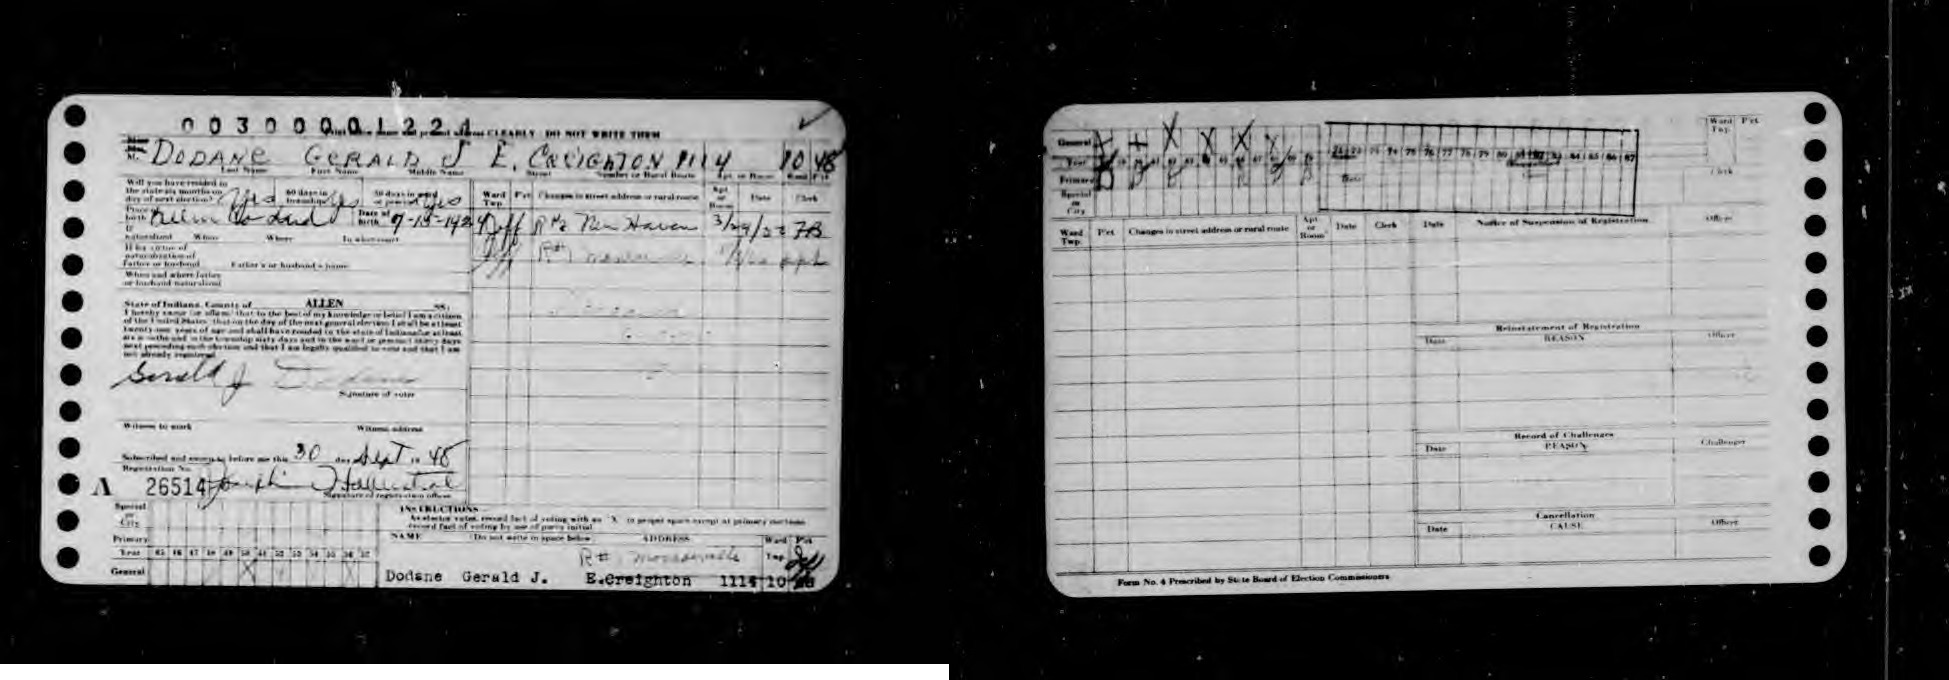 0030000122
CLEARLY DO NOT WRITE THEM
DODANE GERALD J E. CREIGHTON 1114 10 48
Last Name First Name Middle Name Street Number or Rural Route Apt. or Room Ward Pct
Will you have resided in
the state six months on 60 days in 30 days in ward
day of next election? Yes township? Yes or precinct? Yes
Ward Twp. Pct Changes in street address or rural route Apt. or Room Date Clerk
Place of birth Allen Co Ind Date of birth 7-15-192
Jeff R#2 New Haven 3/29/5
If naturalized When Where In what court
Jeff R#1 Monroeville
If by virtue of
naturalization of
Father or husband Father's or husband's name
When and where father
or husband naturalized
State of Indiana, County of ALLEN SS:
I hereby swear (or affirm) that to the best of my knowledge or belief I am a citizen
of the United States; that on the day of the next general election I shall be at least
twenty-one years of age and shall have resided in the state of Indiana for at least
six months and in the township sixty days and in the ward or precinct thirty days
next preceding such election and that I am legally qualified to vote and that I am
not already registered.
Gerald J Dodane
Signature of voter
Witness to mark Witness address
Subscribed and sworn to before me this 30 day Sept 19 48
Registration No.
A 26514
Signature of registration officer
Special or City
Primary
Year 45 46 47 48 49 50 51 52 53 54 55 56 57
General X X
INSTRUCTIONS
As elector votes, record fact of voting with an "X" in proper space except at primary elections
record fact of voting by use of party initial
NAME (Do not write in space below) ADDRESS Ward Pct
R#1 Monroeville Twp. Jeff
Dodane Gerald J. E.Creighton 1114 10
General X X X X X X
Year
Primary
Special or City
72 73 74 75 76 77 78 79 80 81 82 83 84 85 86 87
Ward Twp. Pct
Clerk
Ward Twp. Pct Changes in street address or rural route Apt. or Room Date Clerk
Date Notice of Suspension of Registration Officer
Reinstatement of Registration
Date REASON Officer
Record of Challenges
Date REASON Challenger
Cancellation
Date CAUSE Officer
Form No. 4 Prescribed by State Board of Election Commissioners